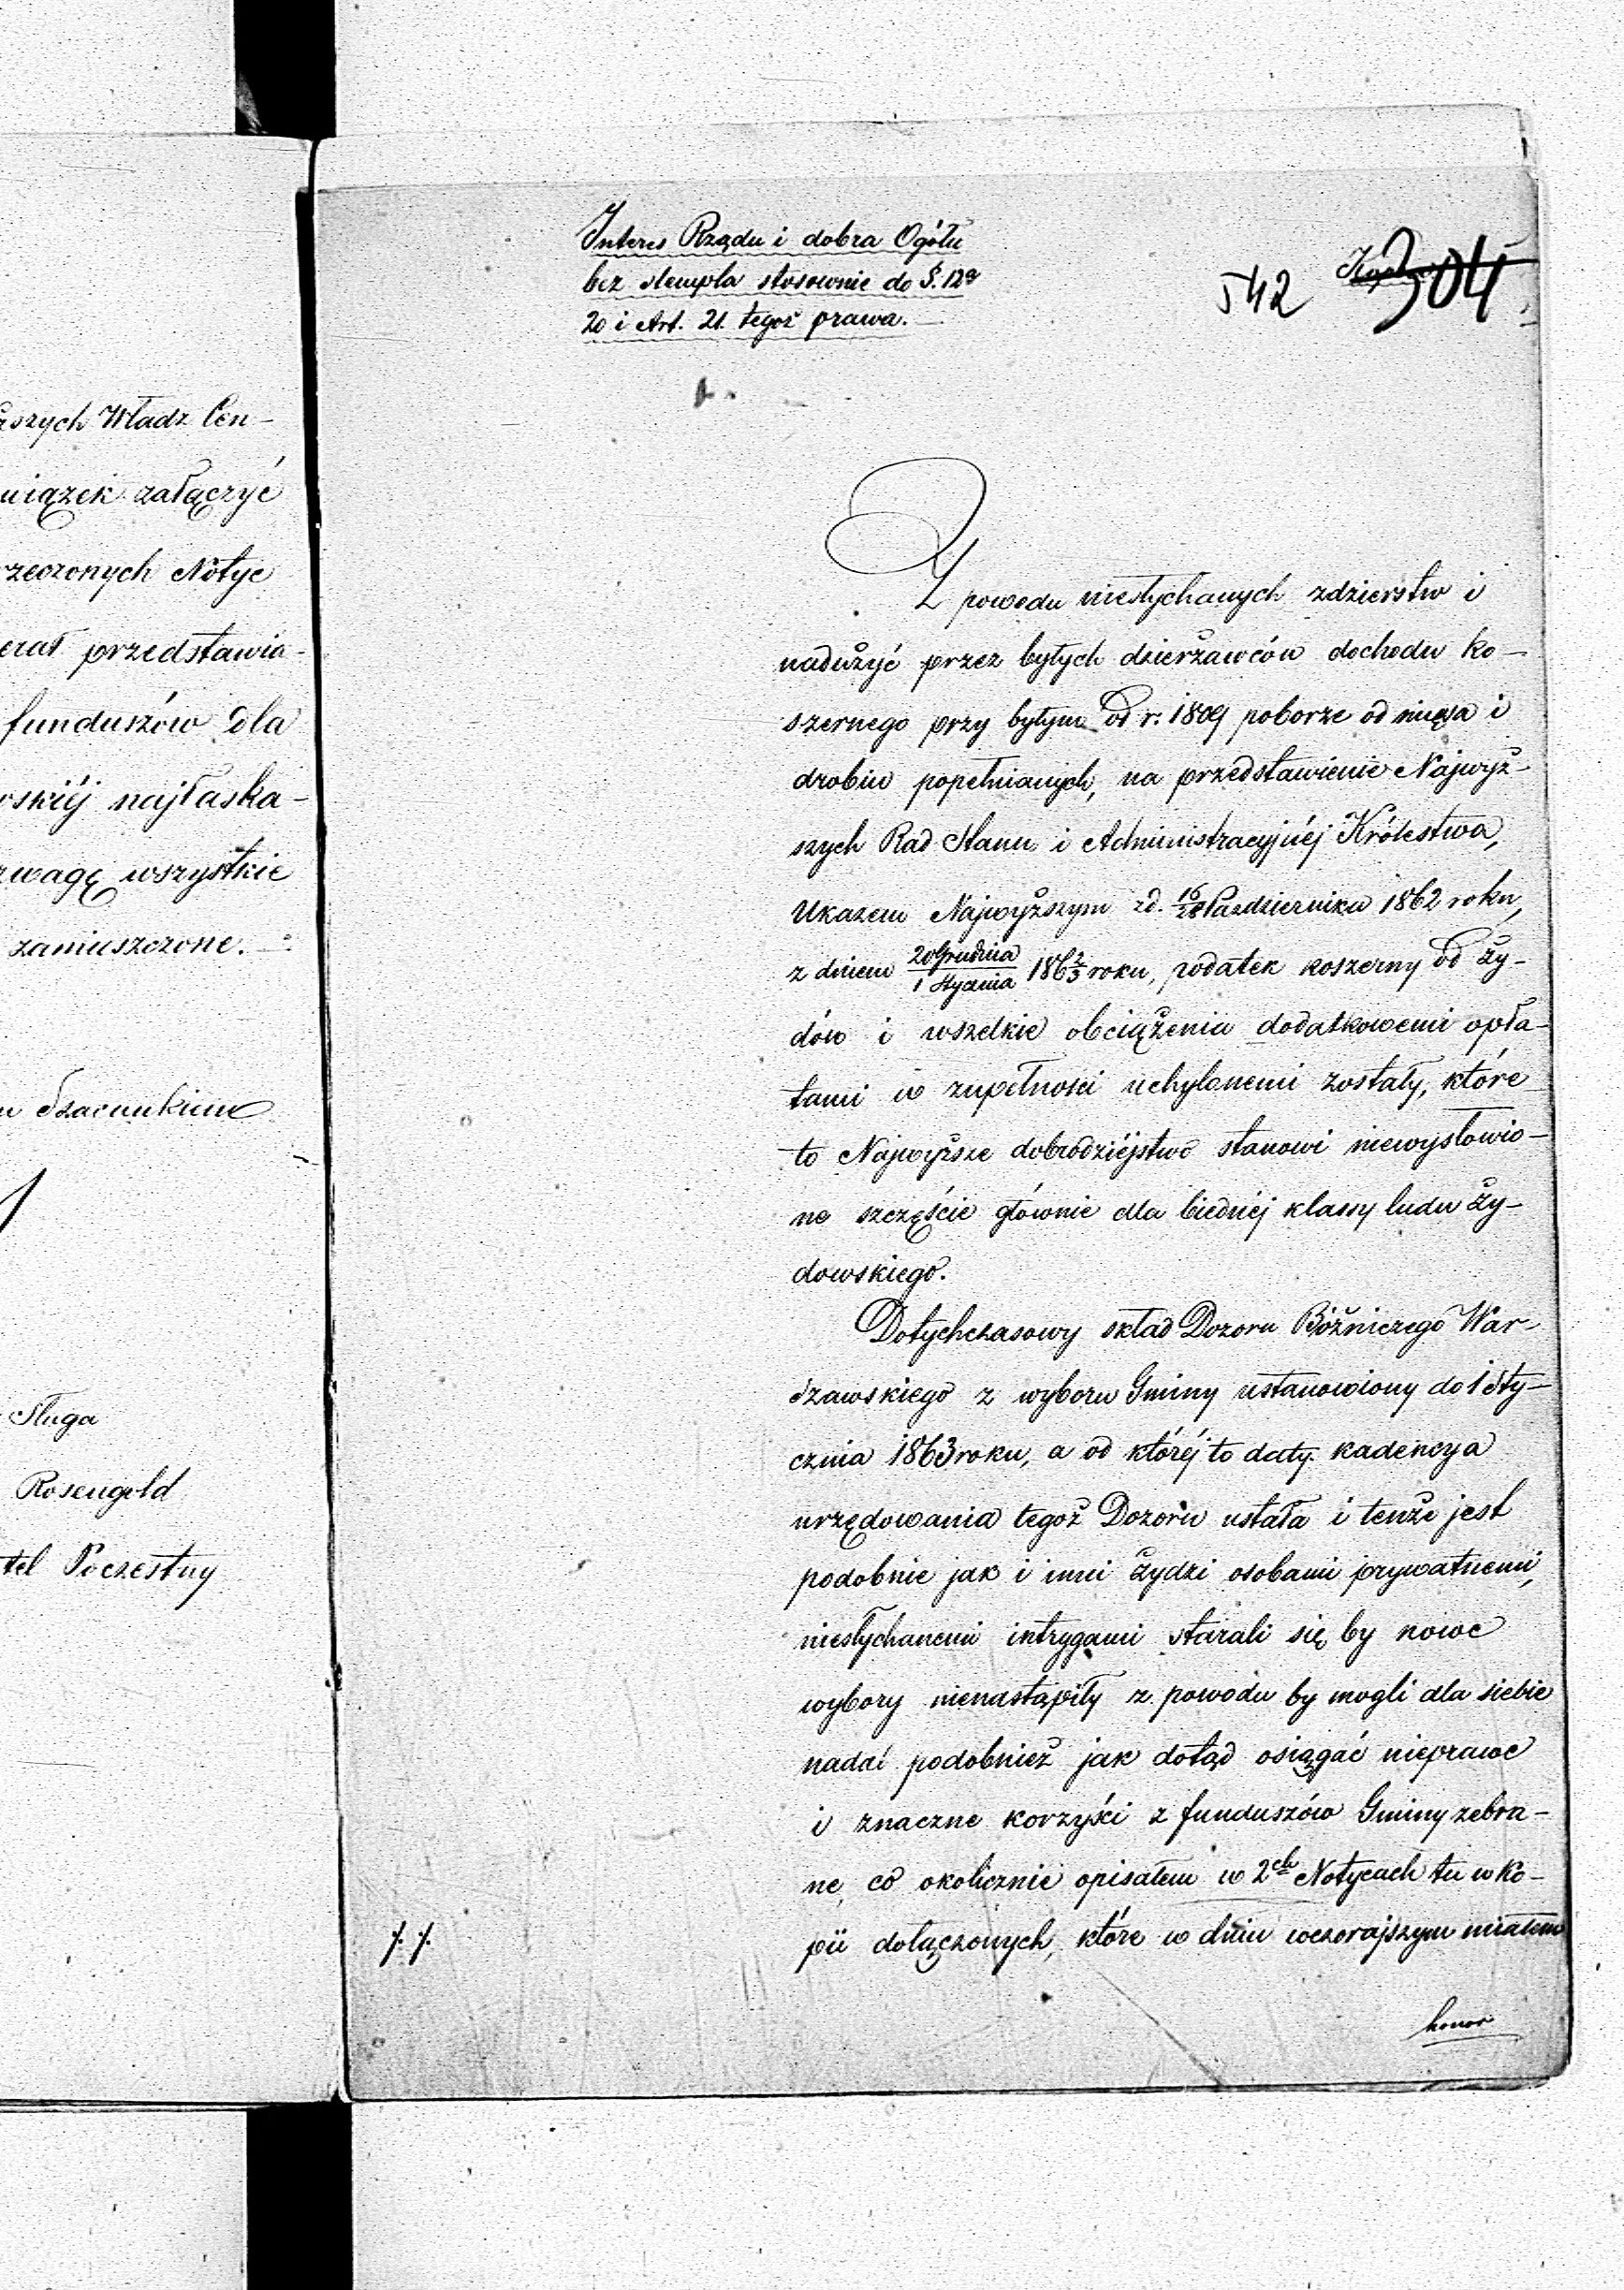 rszych Władz Cen-
wiązek załączyć
rzeczonych Notyc
erat przedstawia-
funduszów dla
wskiéj najłaska-
rwagę wszystkie
zamieszczone.
Szacunkiem
Sługa
Rosengold
tel Poczestny
Interes Rządu i dobra Ogółu
bez stempla stosownie do §. 12º
20 i Art. 21. tegoż prawa.
542 304
Z powodu niesłychanych zdzierstw i
nadużyć przez byłych dzierżawców dochodu ko-
szernego przy byłym od r. 1809 poborze od mięsa i
drobiu popełnianych, na przedstawienie Najwyż-
szych Rad Stanu i Administracyjnéj Królestwa,
Ukazem Najwyższym zd. 16/28 Października 1862 roku,
z dniem 20 Grudnia/1 Stycznia 186 2/3 roku, podatek koszerny od ży-
dów i wszelkie obciążenia dodatkowemi opła-
tami w zupełności uchylonemi zostały, które
to Najwyższe dobrodziéjstwo stanowi niewysłowio-
ne szczęście głównie dla biednéj klassy ludu ży-
dowskiego.
Dotychczasowy skład Dozoru Bóżniczego War-
szawskiego z wyboru Gminy ustanowiony do 1 Sty-
cznia 1863 roku, a od któréj to daty kadencya
urzędowania tegoż Dozoru ustała i tenże jest
podobnie jak i inni żydzi osobami prywatnemi,
niesłychanemi intrygami starali się by nowe
wybory nienastąpiły z powodu by mogli dla siebie
nadal podobnież jak dotąd osiągać nieprawe
i znaczne korzyści z funduszów Gminy zebra-
ne, co okolicznie opisałem w 2ch Notycach tu w Ko-
pii dołączonych, które w dniu wczorajszym miałem
honor